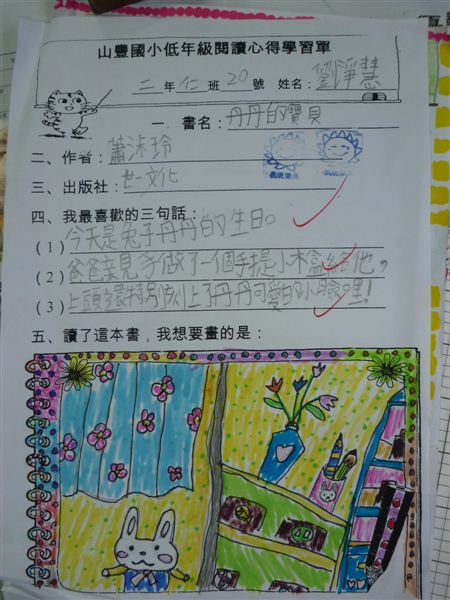 山豐國小低年級閱讀心得學習單
二年仁班20號 姓名：劉淨慧
一、書名：丹丹的寶貝
二、作者：蕭沐玲
三、出版社：世一文化
四、我最喜歡的三句話：
(1) 今天是兔子丹丹的生日。
(2) 爸爸親手做了一個手提小木盒給他，
(3) 上頭還特別刻上了丹丹可愛的小臉哩!
五、讀了這本書，我想要畫的是：